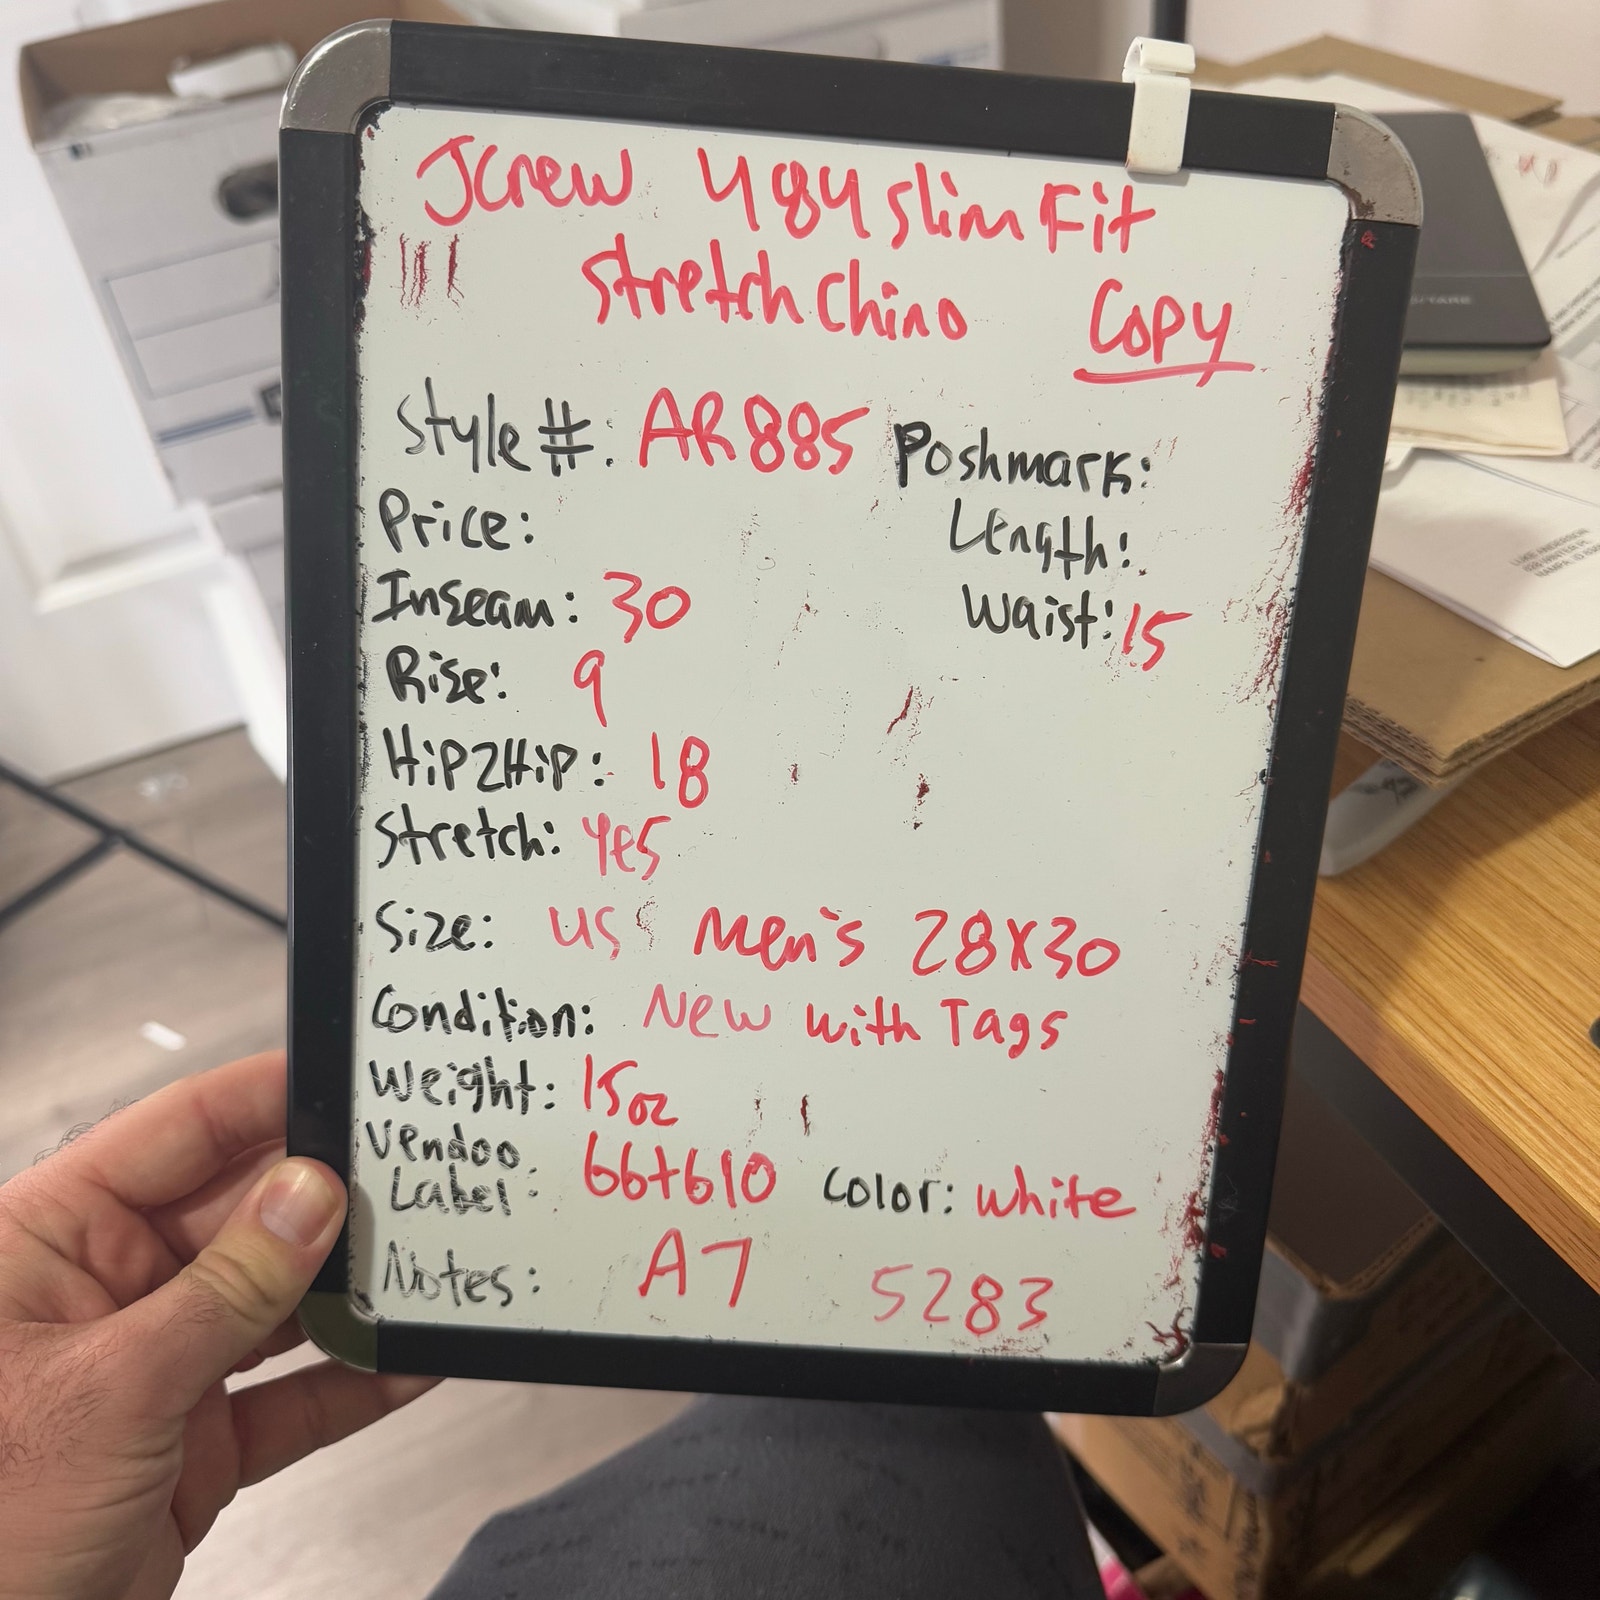 JCrew 484 Slim Fit
Stretch Chino Copy
Style #: AR885 Poshmark:
Price: Length:
Inseam: 30 Waist: 15
Rise: 9
Hip2Hip: 18
Stretch: Yes
Size: US Men's 28X30
Condition: New with Tags
Weight: 15oz
Vendoo
Label: 66+610 Color: White
Notes: A7 5283
LUKE ANDERSON